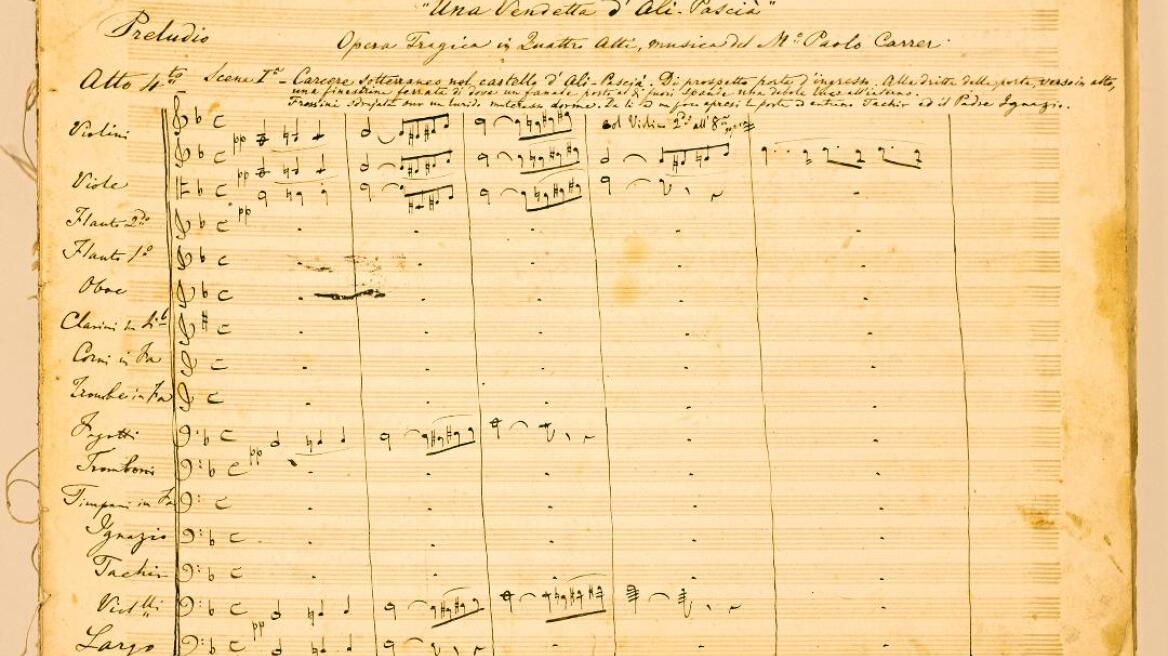 "Una Vendetta d'Ali-Pascià"
Preludio
Opera Tragica in Quattro Atti, musica del M.o Paolo Carrer
Atto 4.to Scena I.a - Carcere sotterraneo nel castello d'Ali-Pascià. Di prospetto porta d'ingresso. Alla dritta della porta, verso in alto,
una finestrina ferrata di dove un fanale posto di fuori spande una debole luce all'interno.
Frosini sdrajata su un lurido materasso dorme. Tachir ed il Padre Ignazio.
Violini
pp
col Violin 2.do all' 8.va
pp
Viole
pp
Flauto 2.do
Flauto 1.o
Oboe
Clarini in Si b
Corni in Fa
Trombe in Fa
Fagotti
pp
Tromboni
Timpani in Fa
Ignazio
Tachir
Viol.lli
pp
Largo